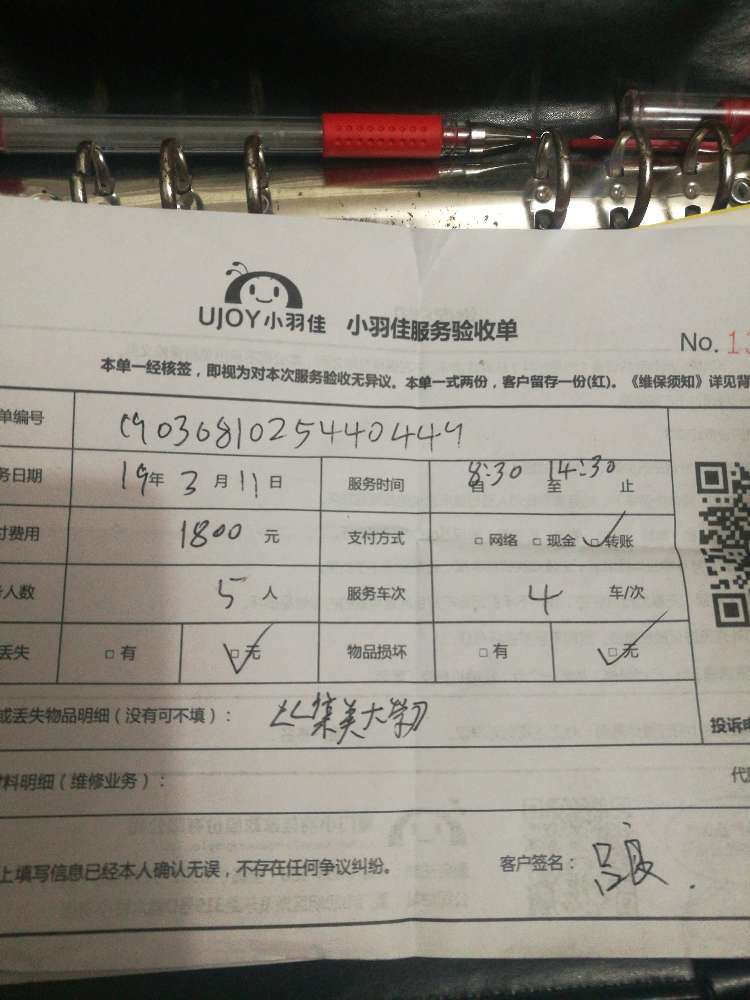 UJOY小羽佳 小羽佳服务验收单
No. 13
本单一经核签，即视为对本次服务验收无异议。本单一式两份，客户留存一份(红)。《维保须知》详见背
单编号
务日期 19年 3月 11日 服务时间 8:30自 至14:30 止
付费用 1800 元 支付方式 □ 网络 □ 现金 □ 转账
人数 5人 服务车次 4 车/次
丢失 □ 有 □ 无 物品损坏 □ 有 □ 无
或丢失物品明细（没有可不填）： 集美大学
投诉电
材料明细（维修业务）：
上填写信息已经本人确认无误，不存在任何争议纠纷。 客户签名：